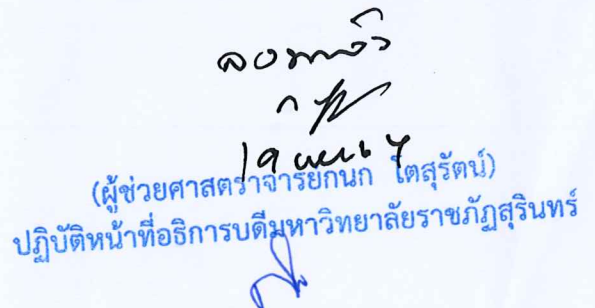 ลงนามแล้ว
(ผู้ช่วยศาสตราจารย์กนก โตสุรัตน์)
ปฏิบัติหน้าที่อธิการบดีมหาวิทยาลัยราชภัฏสุรินทร์